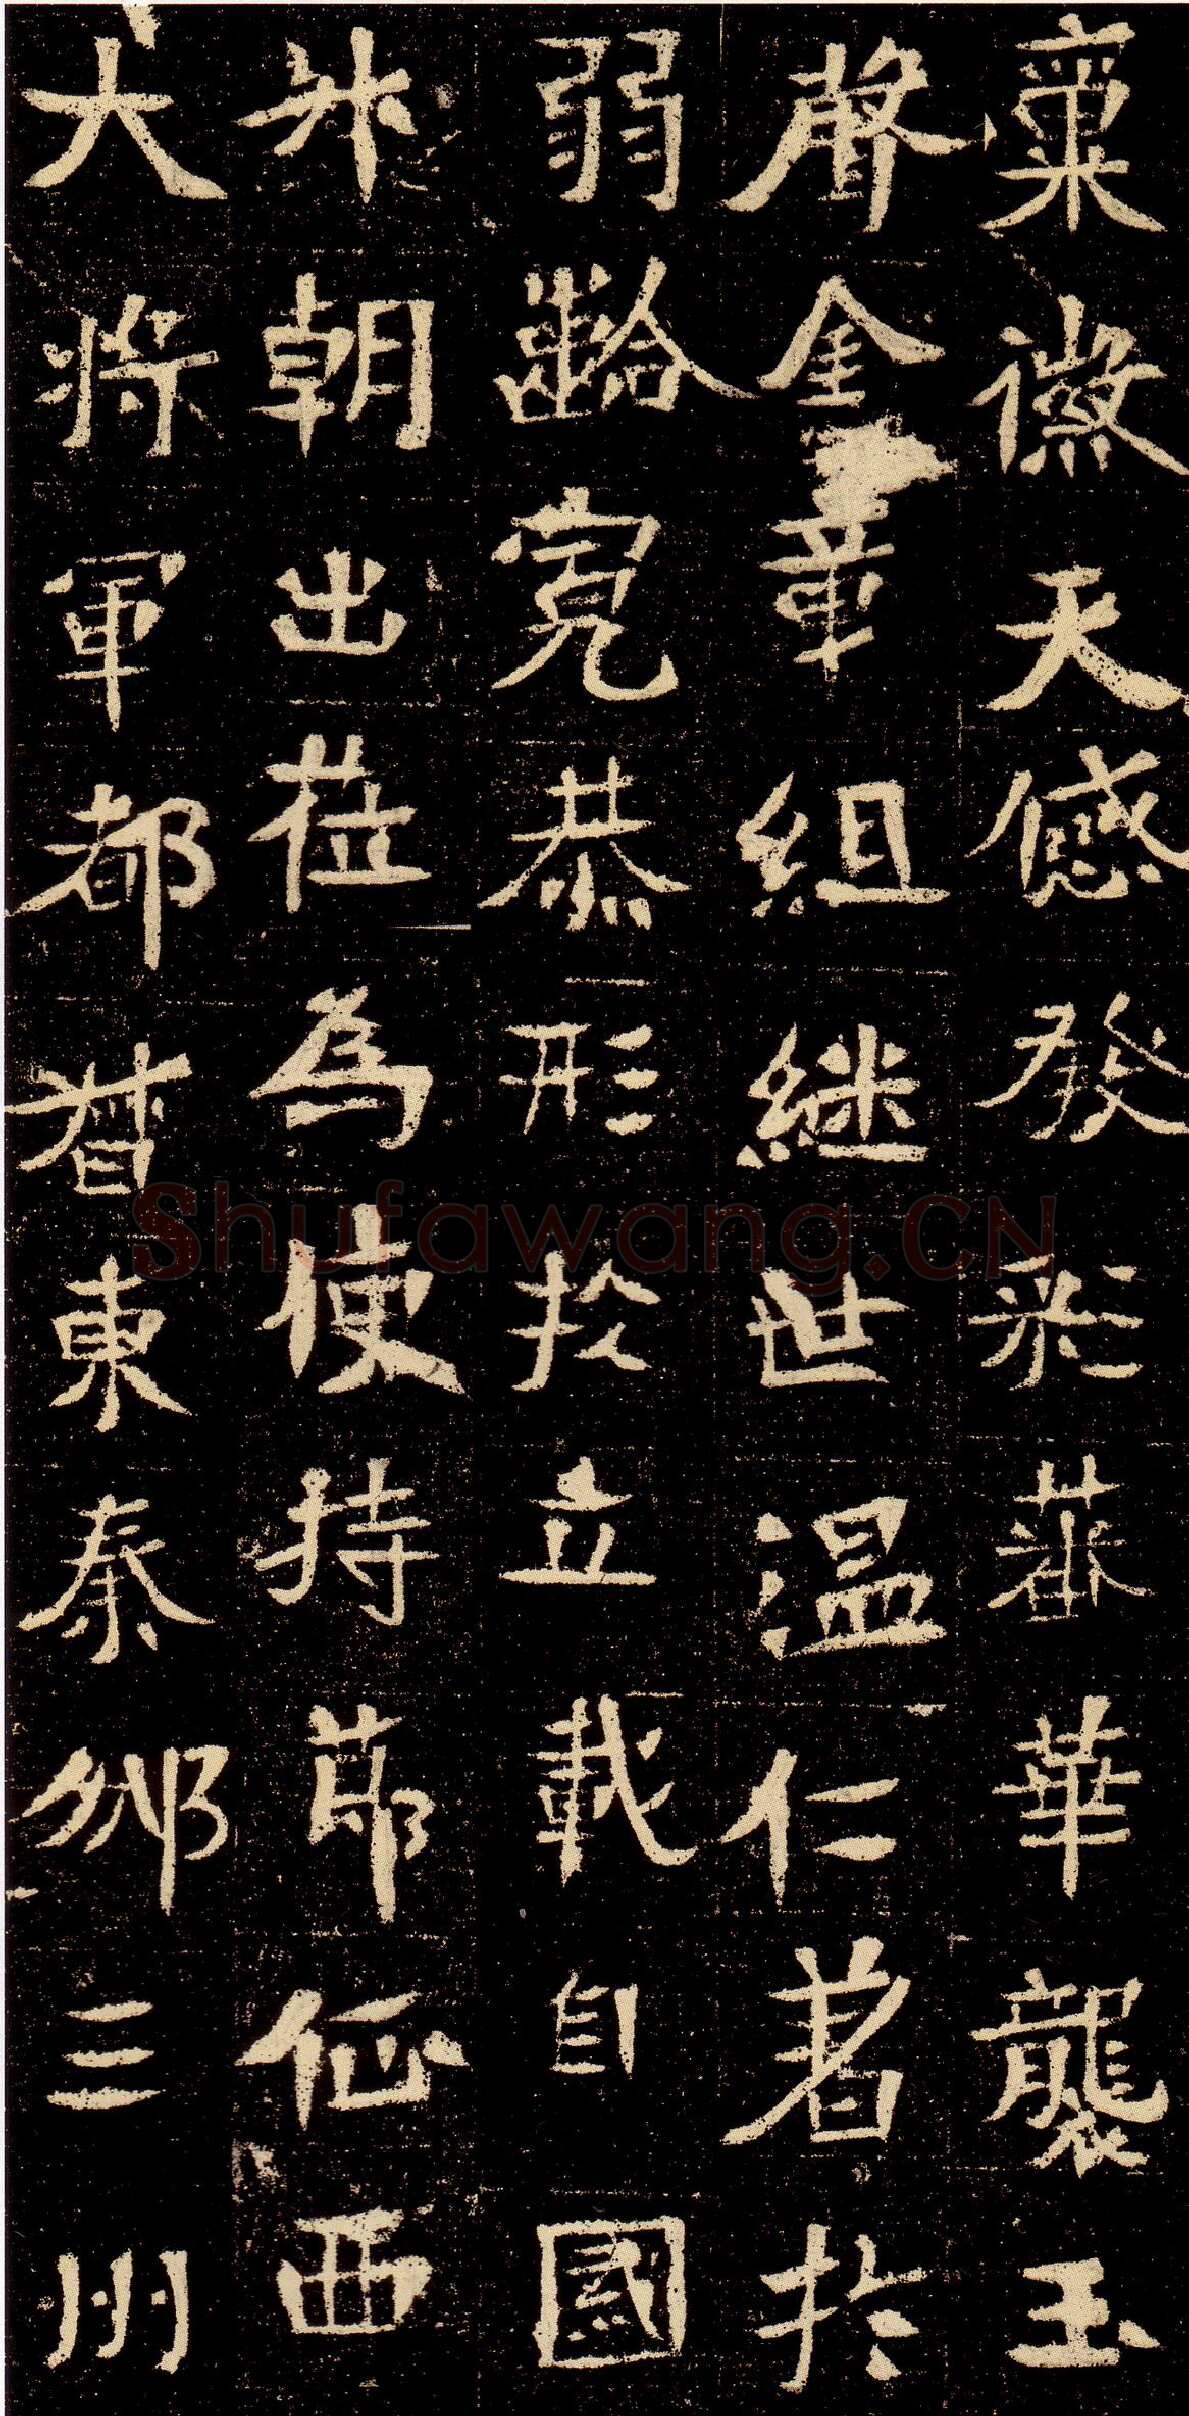 稟徽天感發彩蕃華襲玉
聲金章組継世温仁著扵
弱齡寛恭形扵立載自國
升朝出莅為使持節征西
大將軍都督東秦邠三州
Shufawang.CN